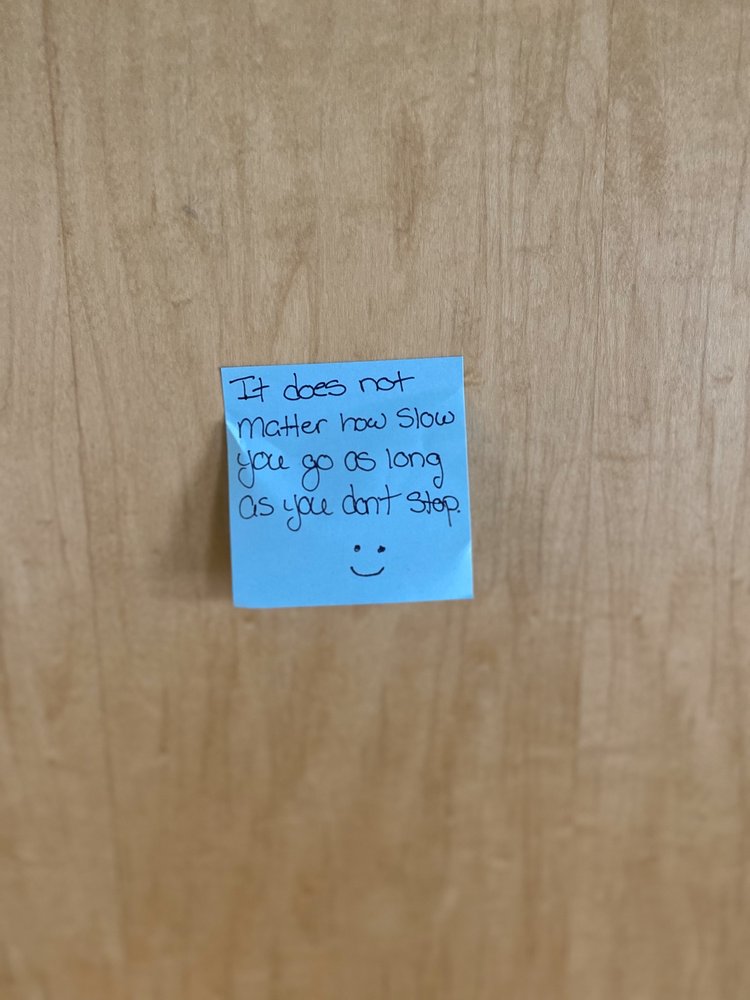 It does not
matter how slow
you go as long
as you dont stop.